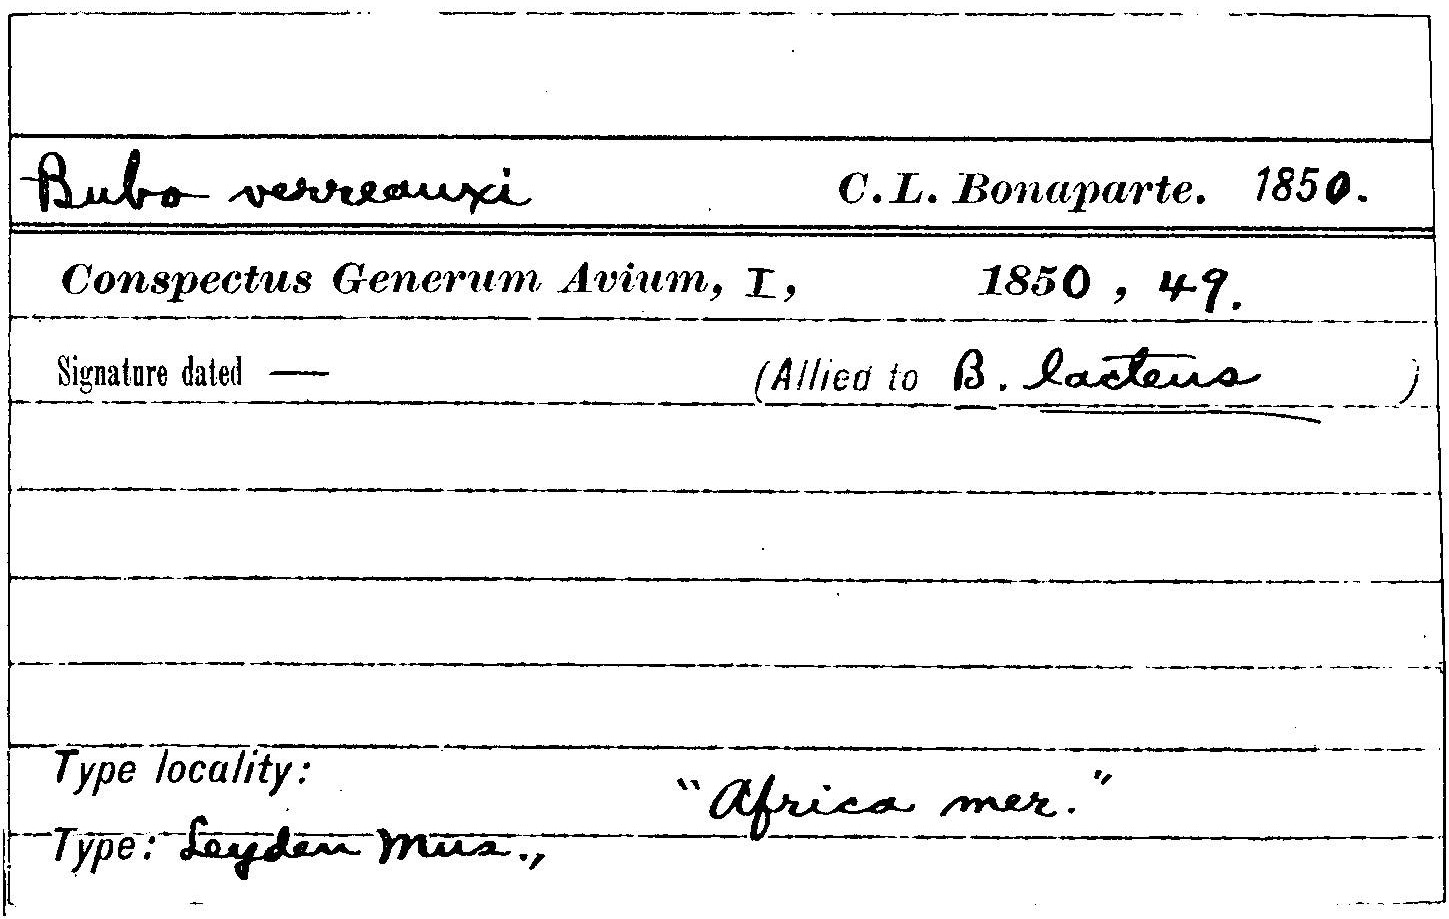 Bubo verreauxi C.L. Bonaparte. 1850.
Conspectus Generum Avium, I, 1850, 49.
Signature dated — (Allied to B. lacteus )
Type locality: "Africa mer."
Type: Leyden Mus.,